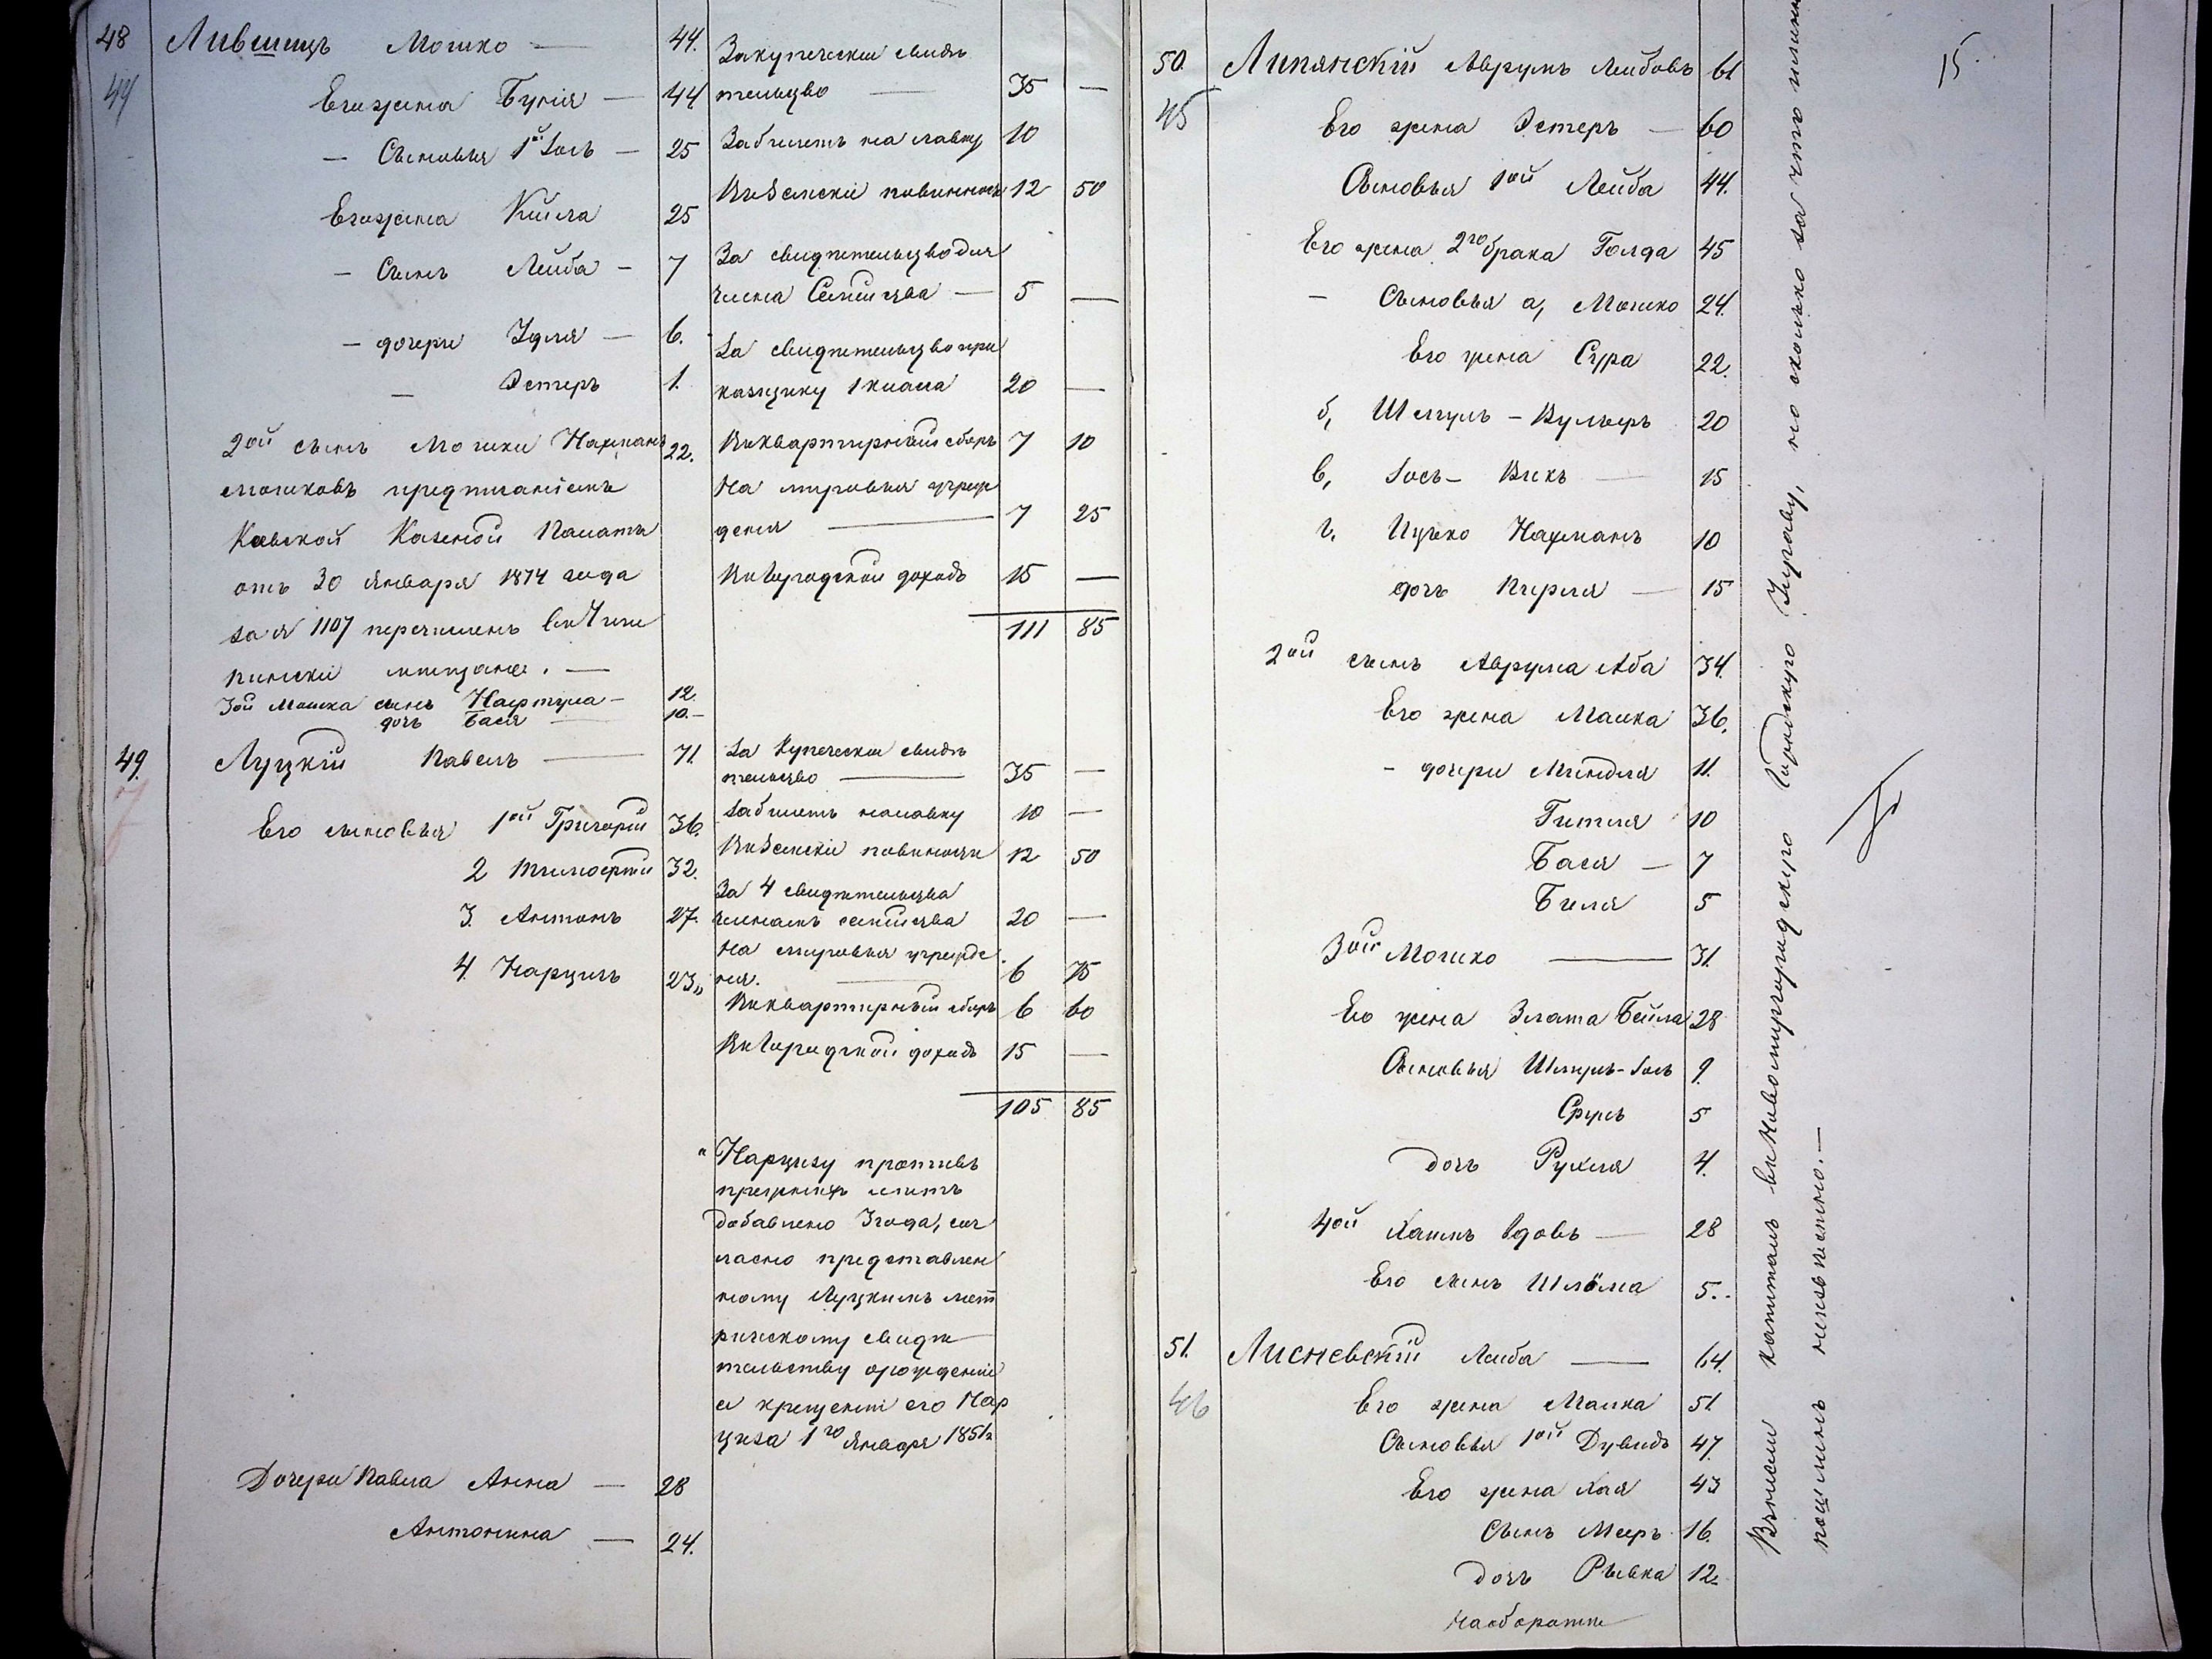 48 Лившицъ Мошко — 44. За купеческое свидѣ
44 Его жена Бунія — 44 тельцво — 35 —
— Сыновья 1ой Іось — 25 За билетъ на лавку 10
Его жена Кейла 25 Въ Земскіе повинности 12 50
— Сынъ Лейба — 7 За свидѣтельцво для
члена Семейцва — 5 —
— дочери Идля — 6. За свидѣтельцво при
— Эстеръ 1. казчику 1 класа 20 —
2ой сынъ Мошки Нахманъ 22. Въ квартирный сборъ 7 10
Мошковъ предписаніемъ На мировыя учреж
Кіевской Казеной Палаты денія — 7 25
отъ 30 Января 1874 года Въ Городской доходъ 15 —
за № 1107 перечисленъ въ Чиги 111 85
ринскіе мещане. —
3ой Мошка сынъ Нафтула — 12.
дочь Бася — 10. —
49. Луцкій Павелъ — 71. За Купеческое свидѣ
тельцво — 35 —
Его сыновья 1ой Григорій 36. За билетъ на лавку 10 —
2 Тимофей 32. Въ Земскіе повиности 12 50
За 4 свидѣтельцва
3. Антонъ 27. членамъ семейцва 20 —
На мировыя учрежде
4. Нарцизъ 23„ нія. — 6 75
Въ квартирный сборъ 6 60
Въ Городской доходъ 15 —
105 85
„ Нарцизу противъ
прежнихъ лѣтъ
добавлено 3 года, сог
ласно представлен
ному Луцкимъ мет
рическому свидѣ
тельству о рожденіи
и крещеніи его Нар
циза 1го Января 1851 г
Дочери Павла Анна — 28
Антонина — 24.
15.
50. Липянскій Аврумъ Лейбовъ 61
45 Его жена Эстеръ — 60
Сыновья 1ой Лейба 44.
Его жена 2го брака Голда 45
— Сыновья а, Мошко 24.
Его жена Сура 22.
б, Шмуль — Вульфъ 20
в, Іось — Бикъ — 15
г, Ицько Нахманъ 10
дочь Перля — 15
2ой сынъ Аврума Аба 34.
Его жена Малка 36.
— дочери Миндля 11.
Гитля 10
Бася — 7
Биля 5
3ой Мошко — 31.
Его жена Злата Бейла 28
Сыновья Шмуль-Іось 9.
Сруль 5
дочь Рухля 4.
4ой Хаимъ вдовъ — 28
Его сынъ Шлёма 5..
51. Лисневскій Лейба — 64.
46 Его жена Малка 51.
Сыновья 1ой Дувидъ 47.
Его жена Хая 43
Сынъ Мееръ 16.
дочь Рывка 12.
На оборотѣ
капиталъ въ Новомиргородскую Городскую Управу, но сколько за что
пошлинъ неизвѣстно. —